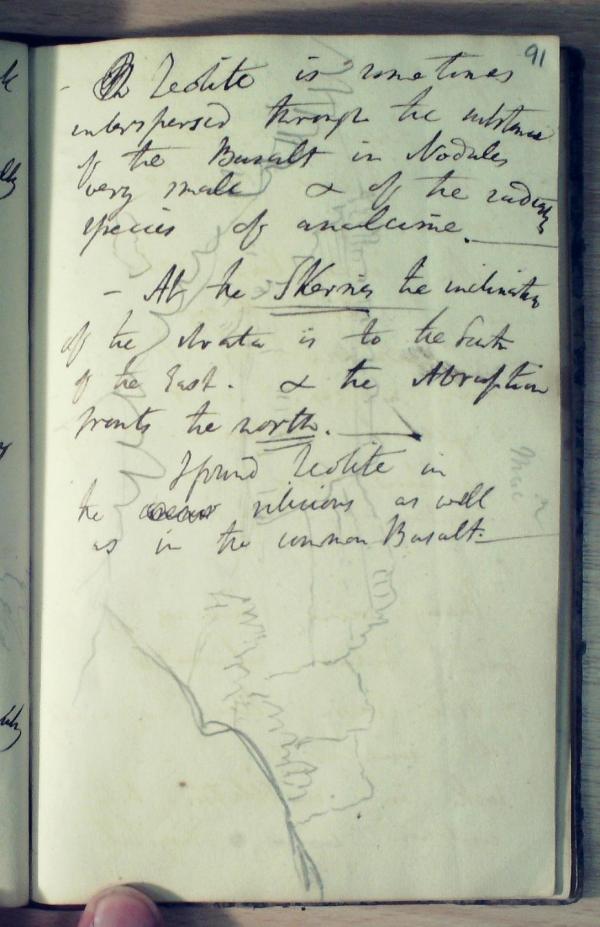 91
- Zeolite is sometimes
interspersed through the substance
of the Basalt in Nodules
very small & of the radiating
species of analcime.
- At the Skerries the inclination
of the strata is to the South
of the East. & the Abruption
fronts the north.
I found Zeolite in
the silicious as well
as in the common Basalt.